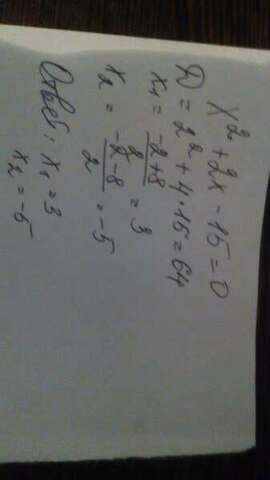 x² + 2x - 15 = 0
D = 2² + 4·15 = 64
x₁ = (-2+8)/2 = 3
x₂ = (-2-8)/2 = -5
Ответ: x₁ = 3
x₂ = -5